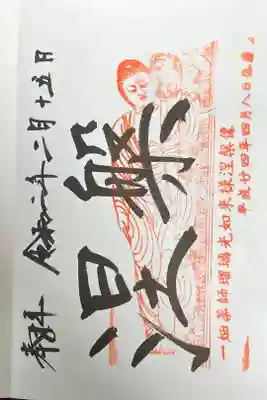 奉拝 令和二年二月十五日
涅槃
一畑薬師瑠璃光如来様涅槃像
平成廿四年四月八日